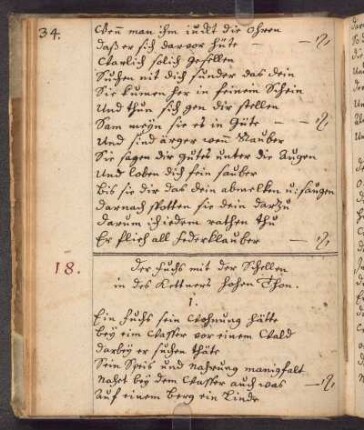 34.
Wenn man ihm juckt die Ohren
daß er sich darvor hüte
Warlich solich Gesellen
Suchen nit dich sunder das dein
Sie kumen her in feinem Schein
Und thun sich gen dir stellen
Sam meyn sie es in Güte
Und sind ärger wenn Rauber
Sie sagen dir Gutes unter die Augen
Und loben dich fein sauber
Bis sie dir das dein abmelken u: saugen
darnach spotten sie dein dartzu
darum ich iedem rathen thu
Er flich all Federklauber
18.
Der Fuchs mit der Schellen
in des Kettners hohen Thon.
1.
Ein Fuchs sein Wohnung hätte
bey eim Wasser vor einem Wald
darbey er suchen thäte
Sein Speis und Nahrung manigfalt
Nahet bey dem Wasser auch was
Auf einem Berg ein Linde